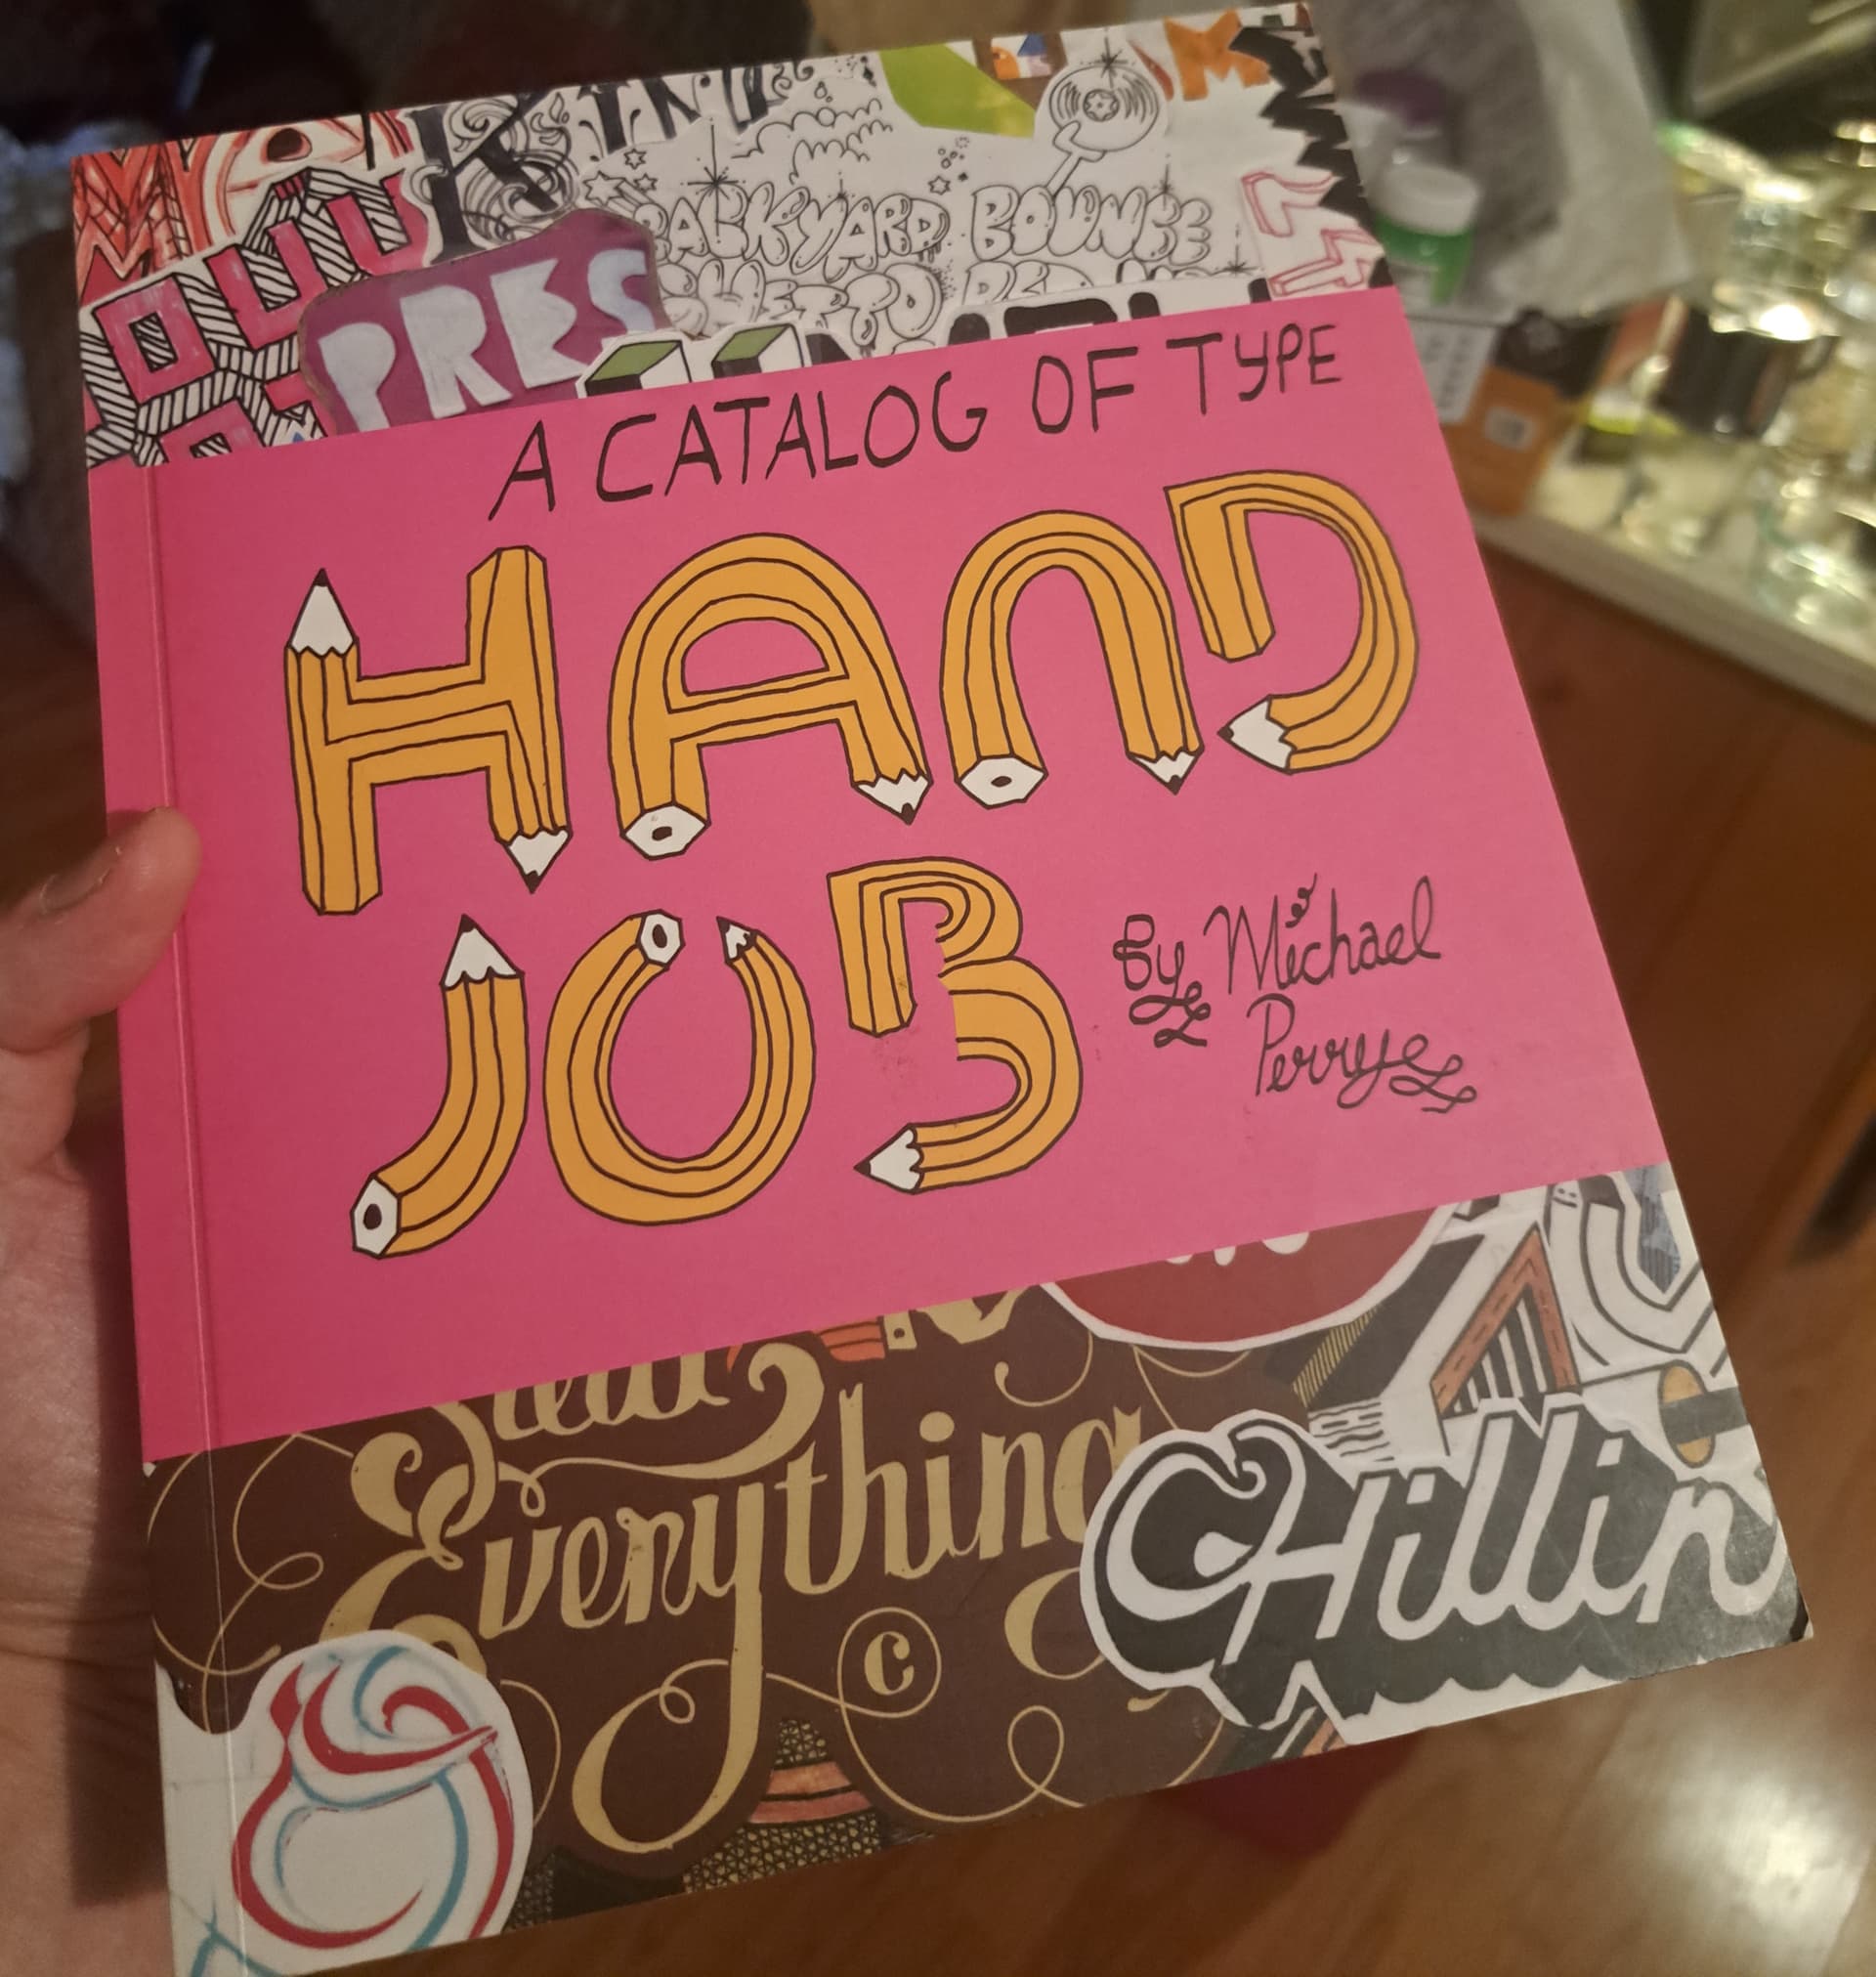 PRES
BACKYARD BOUNCE
GHETTO
A CATALOG OF TYPE
HAND
JOB
By Michael
Perry
Steal
Everything
C
CHillin